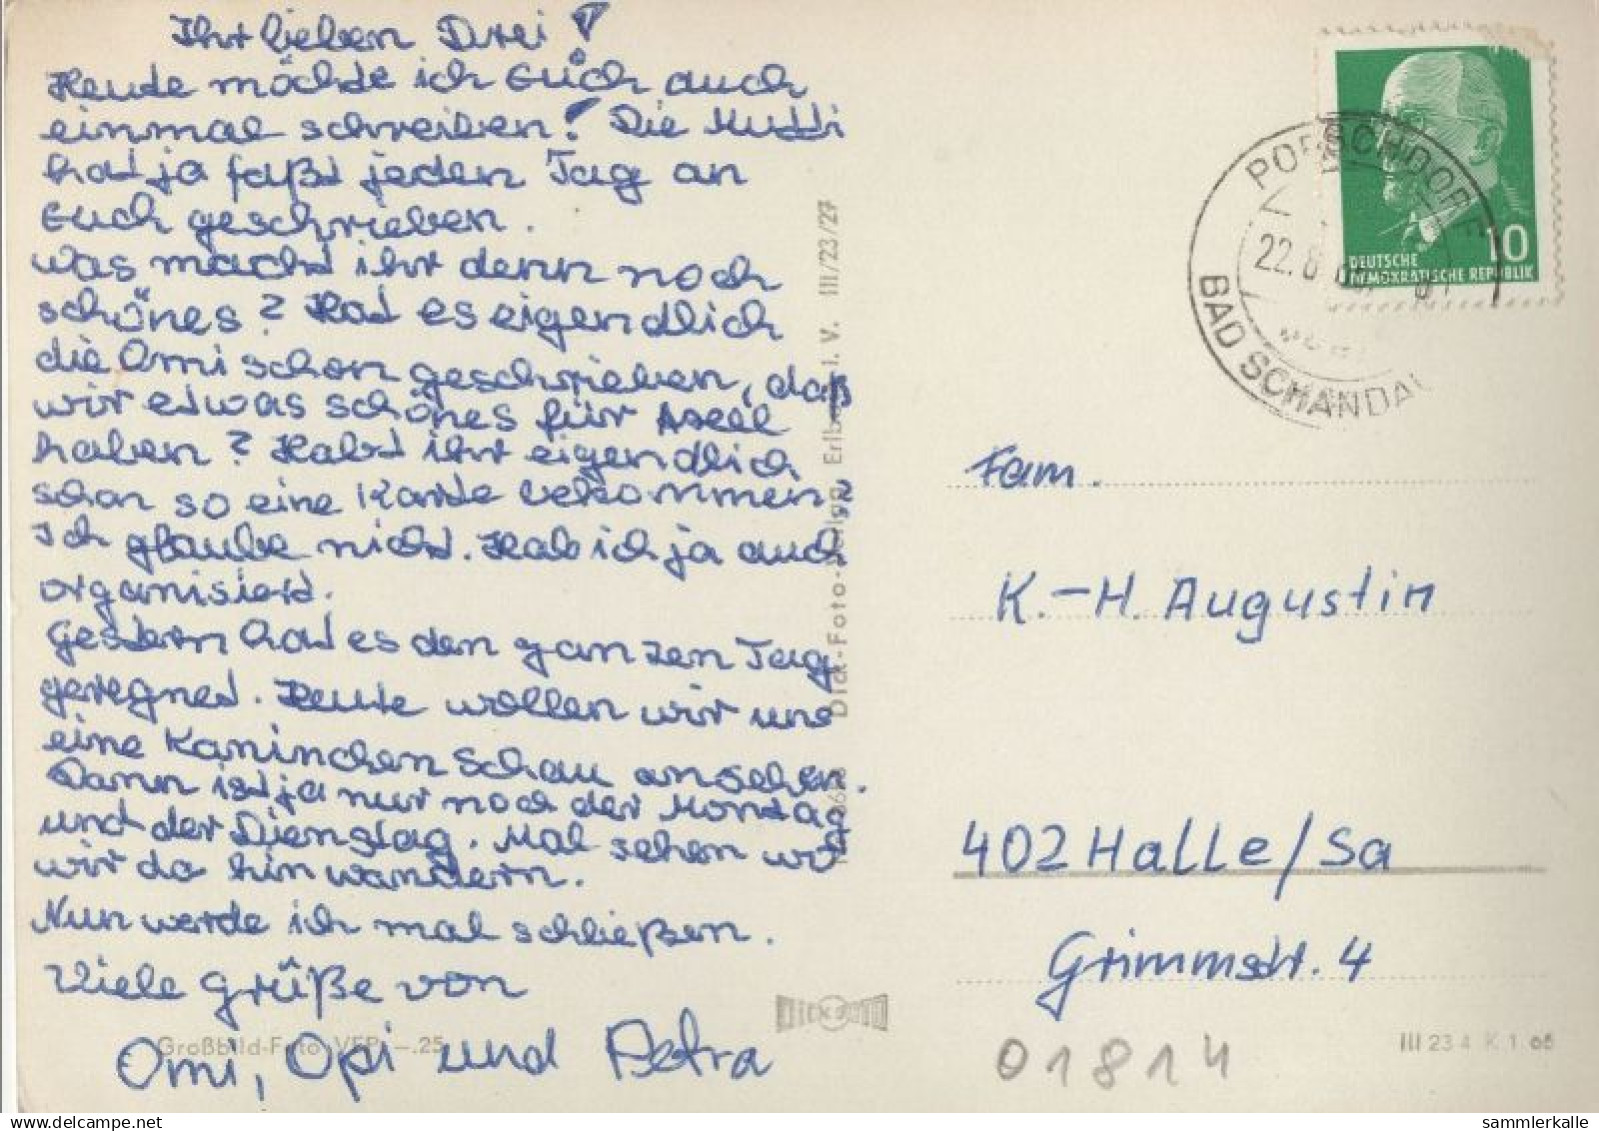 Ihr lieben Drei!
Heute möchte ich Euch auch
einmal schreiben! Die Mutti
hat ja faßt jeden Tag an
Euch geschrieben.
Was macht ihr denn noch
schönes? Hat es eigendlich
die Omi schon geschrieben, daß
wir etwas schönes für Axell
haben? Habt ihr eigendlich
schon so eine Karte bekommen?
Ich glaube nicht. Hab ich ja auch
organisiert.
Gestern hat es den ganzen Tag
geregnet. Heute wollen wir uns
eine Kaninchen Schau ansehen.
Dann ist ja nur noch der Montag
und der Dienstag. Mal sehen wo
wir da hin wandern.
Nun werde ich mal schließen.
Viele Grüße von
Omi, Opi und Petra
Großbild-Foto VEP -.25
Dick-Foto-Verlag Erlbach i. V. III/23/27
Dick Foto
DEUTSCHE
DEMOKRATISCHE REPUBLIK
10
PORSCHDORF
22.8
BAD SCHANDAU
Fam.
K.-H. Augustin
402 Halle/Sa
Grimmstr. 4
01814
III 23 4 K. 1.66
sammlerkalle